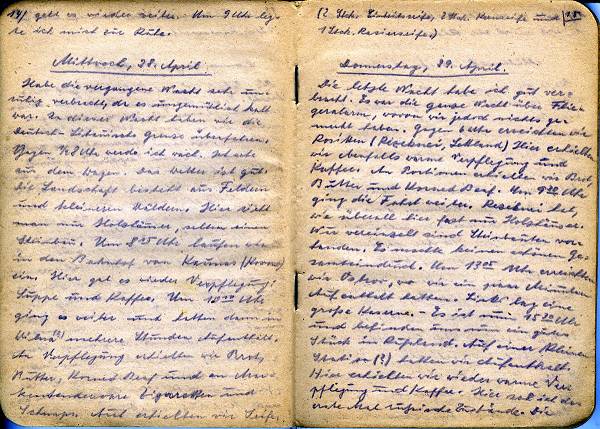 14/ geht es wieder weiter. Um 9 Uhr leg-
te ich mich zur Ruhe.
Mittwoch, 28. April.
Habe die vergangene Nacht sehr un-
ruhig verbracht, da es ungemütlich kalt
war. In dieser Nacht haben wir die
Deutsch-Litauische Grenze überfahren.
Gegen ½8 Uhr werde ich wach. Schaute
aus dem Wagen. Das Wetter ist gut.
Die Landschaft besteht aus Feldern
und kleineren Wäldern. Hier sieht
man nur Holzhäuser, selten einen
Steinbau. Um 8 Uhr laufen wir
in den Bahnhof von Kaunas (Kowno)
ein. Hier gab es wieder Verpflegung:
Suppe und Kaffee. Um 10 Uhr
ging es weiter und hatten dann in
Wilna (?) mehrere Stunden Aufenthalt.
An Verpflegung erhielten wir Brot,
Butter, Korned Beef und an Mar-
ketenderware Zigaretten und
Schnaps. Auch erhielten wir Seife,
(2 Stck. Einheitsseife, 2 Stck. Kernseife und
1 Stck. Rasierseife.)
Donnerstag, 29. April.
Die letzte Nacht habe ich gut ver-
bracht. Es war die ganze Nacht über Flie-
geralarm, wovon wir jedoch nichts ge-
merkt haben. Gegen 6 Uhr erreichten wir
Rositten (Lettland) Hier erhielten
wir ebenfalls warme Verpflegung und
Kaffee. An Portionen erhielten wir Brot,
Butter und Korned Beef. Um 9 Uhr
ging die Fahrt weiter. hat,
wie überall hier fast nur Holzhäuser.
Nur vereinzelt sind Steinbauten vor-
handen. Es machte keinen schönen Ge-
samteindruck. Um 13 Uhr erreichten
wir Ostrow, wo wir ein paar Minuten
Aufenthalt hatten. Links lag eine
große Kaserne. - Es ist nun 15 Uhr
und befinden uns nun ein gutes
Stück in Rußland. Auf einer kleinen
Station (?) hatten wir Aufenthalt.
Hier erhielten wir wieder warme Ver-
pflegung und Kaffee. Hier sah ich das
erste mal russische Zustände. Die